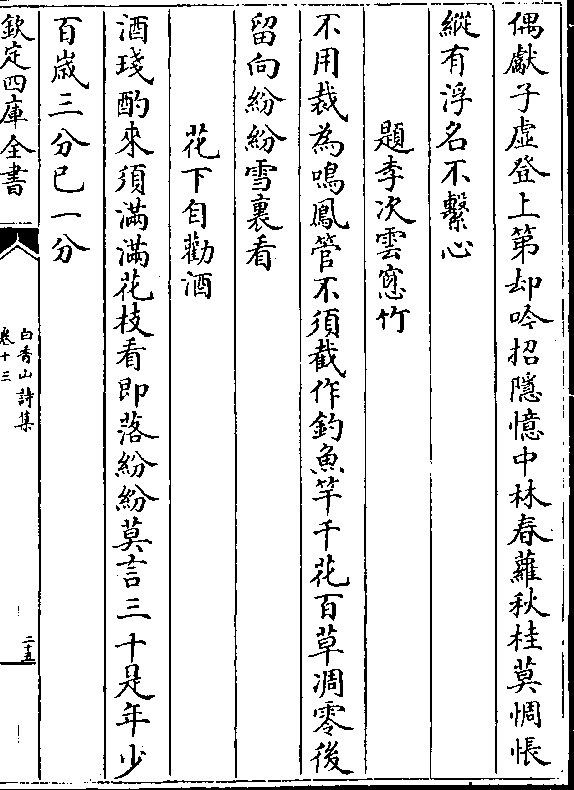 偶獻子虛登上第却吟招隱憶中林春蘿秋桂莫惆悵
縱有浮名不繫心
題李次雲窓竹
不用裁為鳴鳳管不須截作釣魚竿千花百草凋零後
留向紛紛雪裏看
花下自勸酒
酒琖酌來須滿滿花枝看即落紛紛莫言三十是年少
百嵗三分已一分
欽定四庫全書
白香山詩集
卷十三
二十五